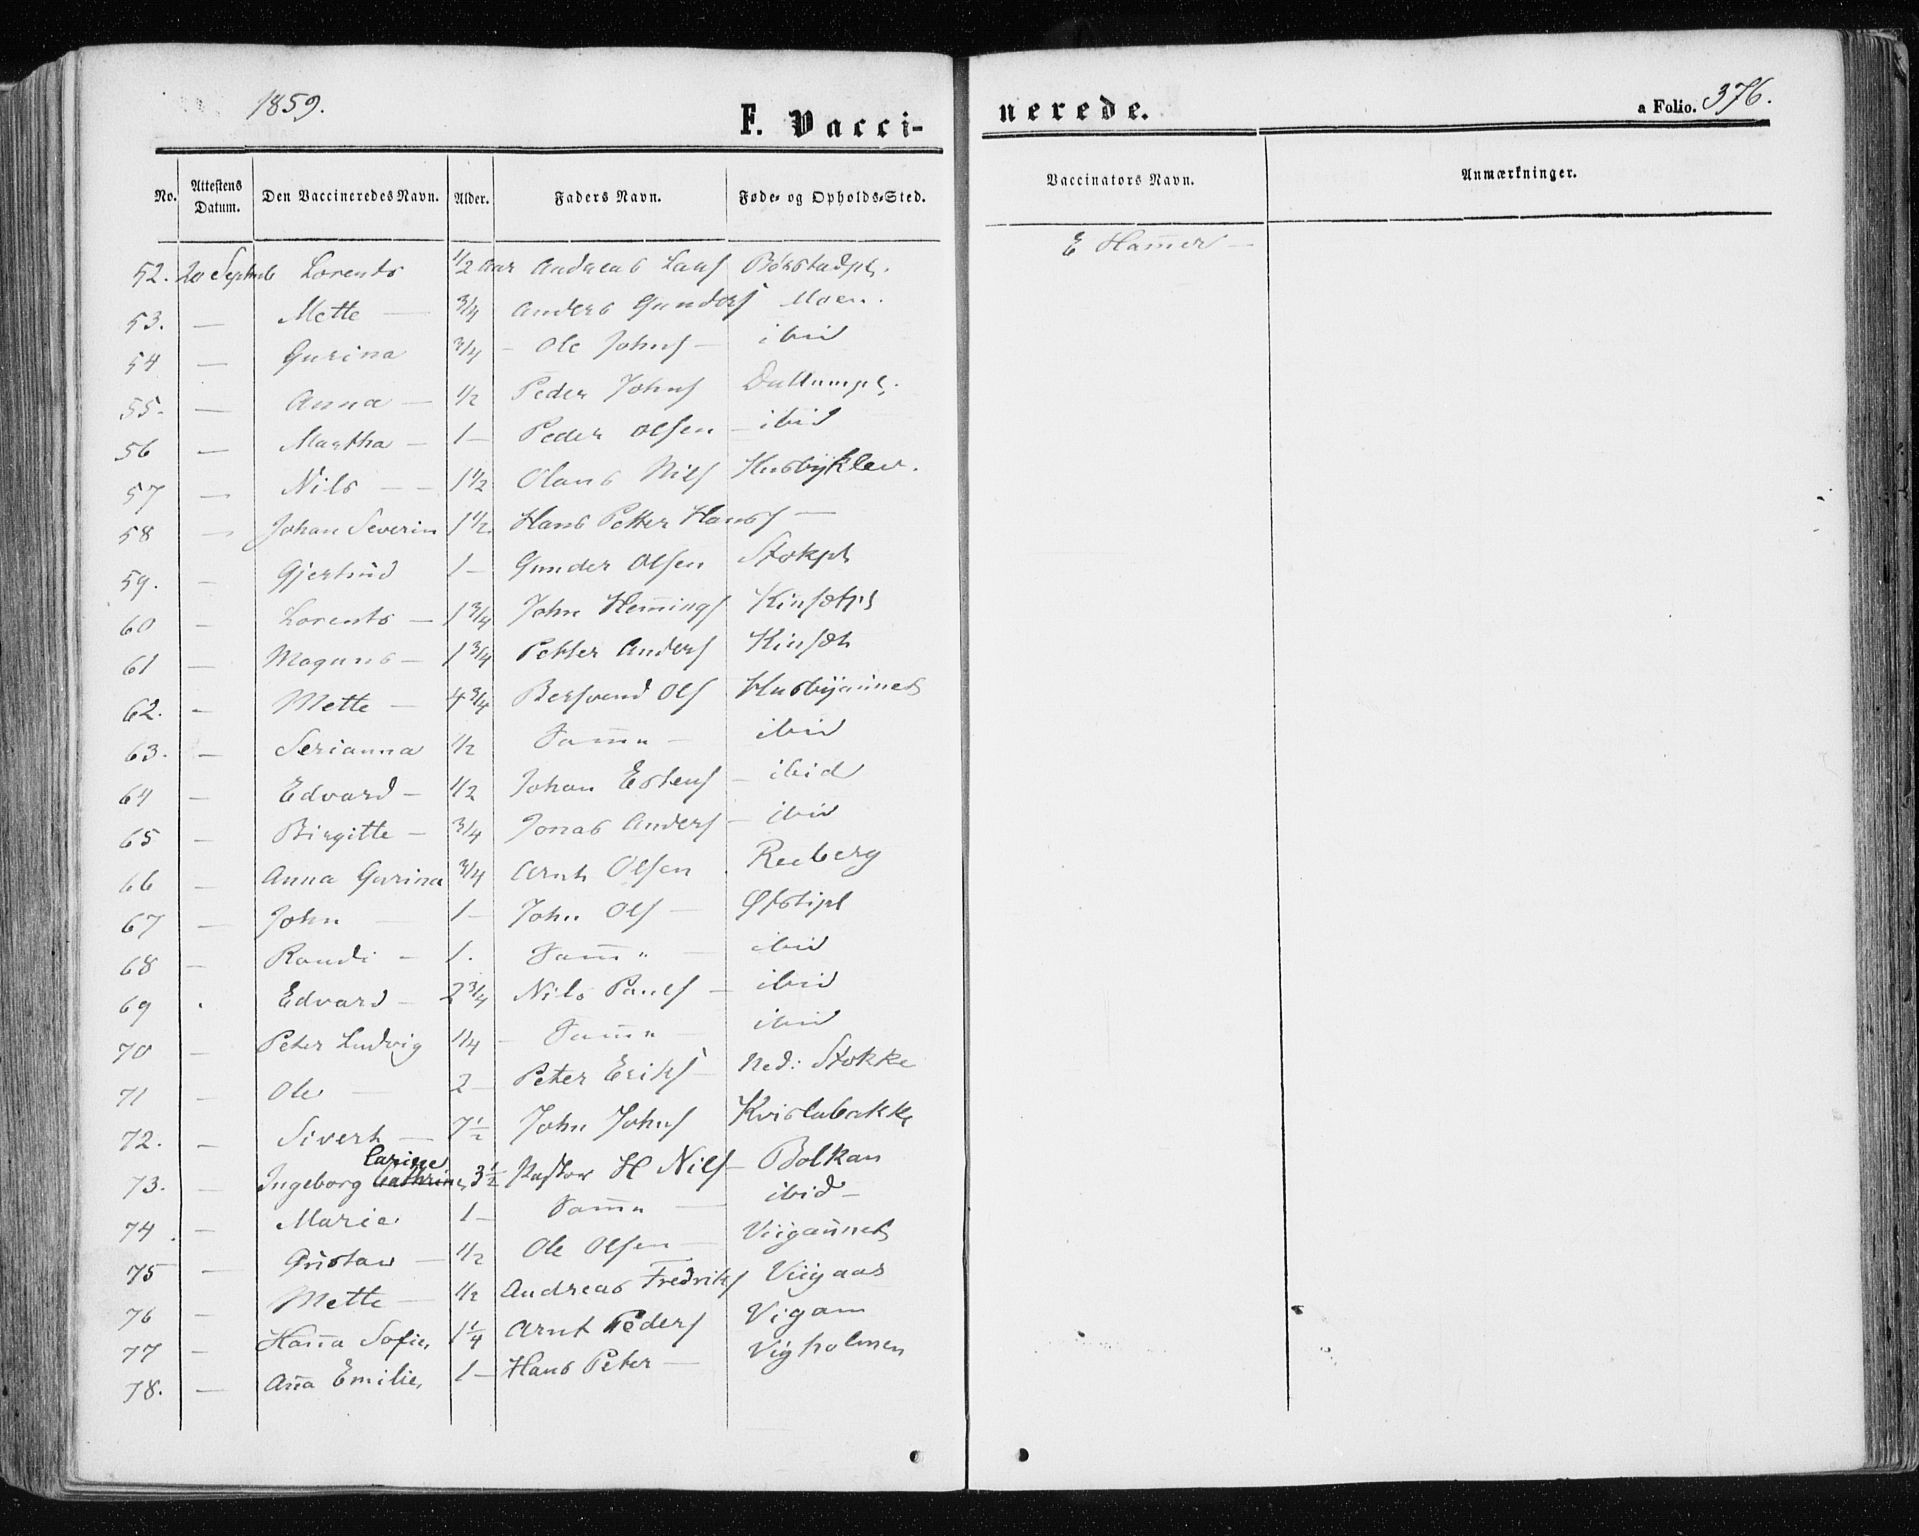 1859.
F. Vacci-
nerede.
a Folio. 376.
No. Attestens Datum. Den Vaccineredes Navn. Alder. Faders Navn. Føde- og Opholds-Sted. Vaccinators Navn. Anmærkninger.
52. 20 Septemb Lorents 1/2 Aar Andreas Larsf E Hamer —
53. — Mette — 3/4 Anders Gundersf Moen.
54 — Gurina 3/4 — Ole Johnsf — ibid
55. — Anna — 1/2 Peder Johnsf
56 — Martha — 1 — Peder Olsen — ibid
57 — Nils — — 1 1/2 Olaus Nilsf Husbyklev.
58 — Johan Severin 1 1/2. Hans Petter Hansf —
59. — Gjertrud 1 — Gunder Olsen Stokpl
60 — Lorents — 1 3/4 John Hem̄ingsf Kinsætpl
61 — Magnus — 1 3/4 Petter Andersf Kinsæt
62. — Mette — 4 3/4 Bersvend Olsf
63. — Serianna 1/2 Sam̄e — ibid
64 — Edvard — 1/2 Johan Estensf — ibid
65 — Birgitte — 3/4 Jonas Andersf — ibid
66 — Anna Gurina 3/4 Arnt Olsen Reeberg
67 — John — 1 — John Olsf — Øfstipl
68 — Randi — 1. Sam̄e — ibid
69 . Edvard — 2 3/4 Nils Paulsf — ibid
70 — Peter Ludvig 1/4 — Sam̄e — ibid
71 — Ole — 2 — Peter Eriksf — Ned: Stokke
72. — Sivert — 7 1/2 John Johnsf Kvislabakke
Carine
73. — Ingeborg Cathrine, 3 1/2 Pastor H Nilsf — Bolkan
74 . — Marie 1 — Sam̄e — ibid —
75 — Gustav — 1/2 Ole Olsen —
76 — Mette — 1/2 Andreas Fredriksf Viigaas
77 — Han̄a Sofie, 1 1/4 Arnt Pedersf Vigam
78. — An̄a Emilie, 1 — Hans Peter — Vigholmen